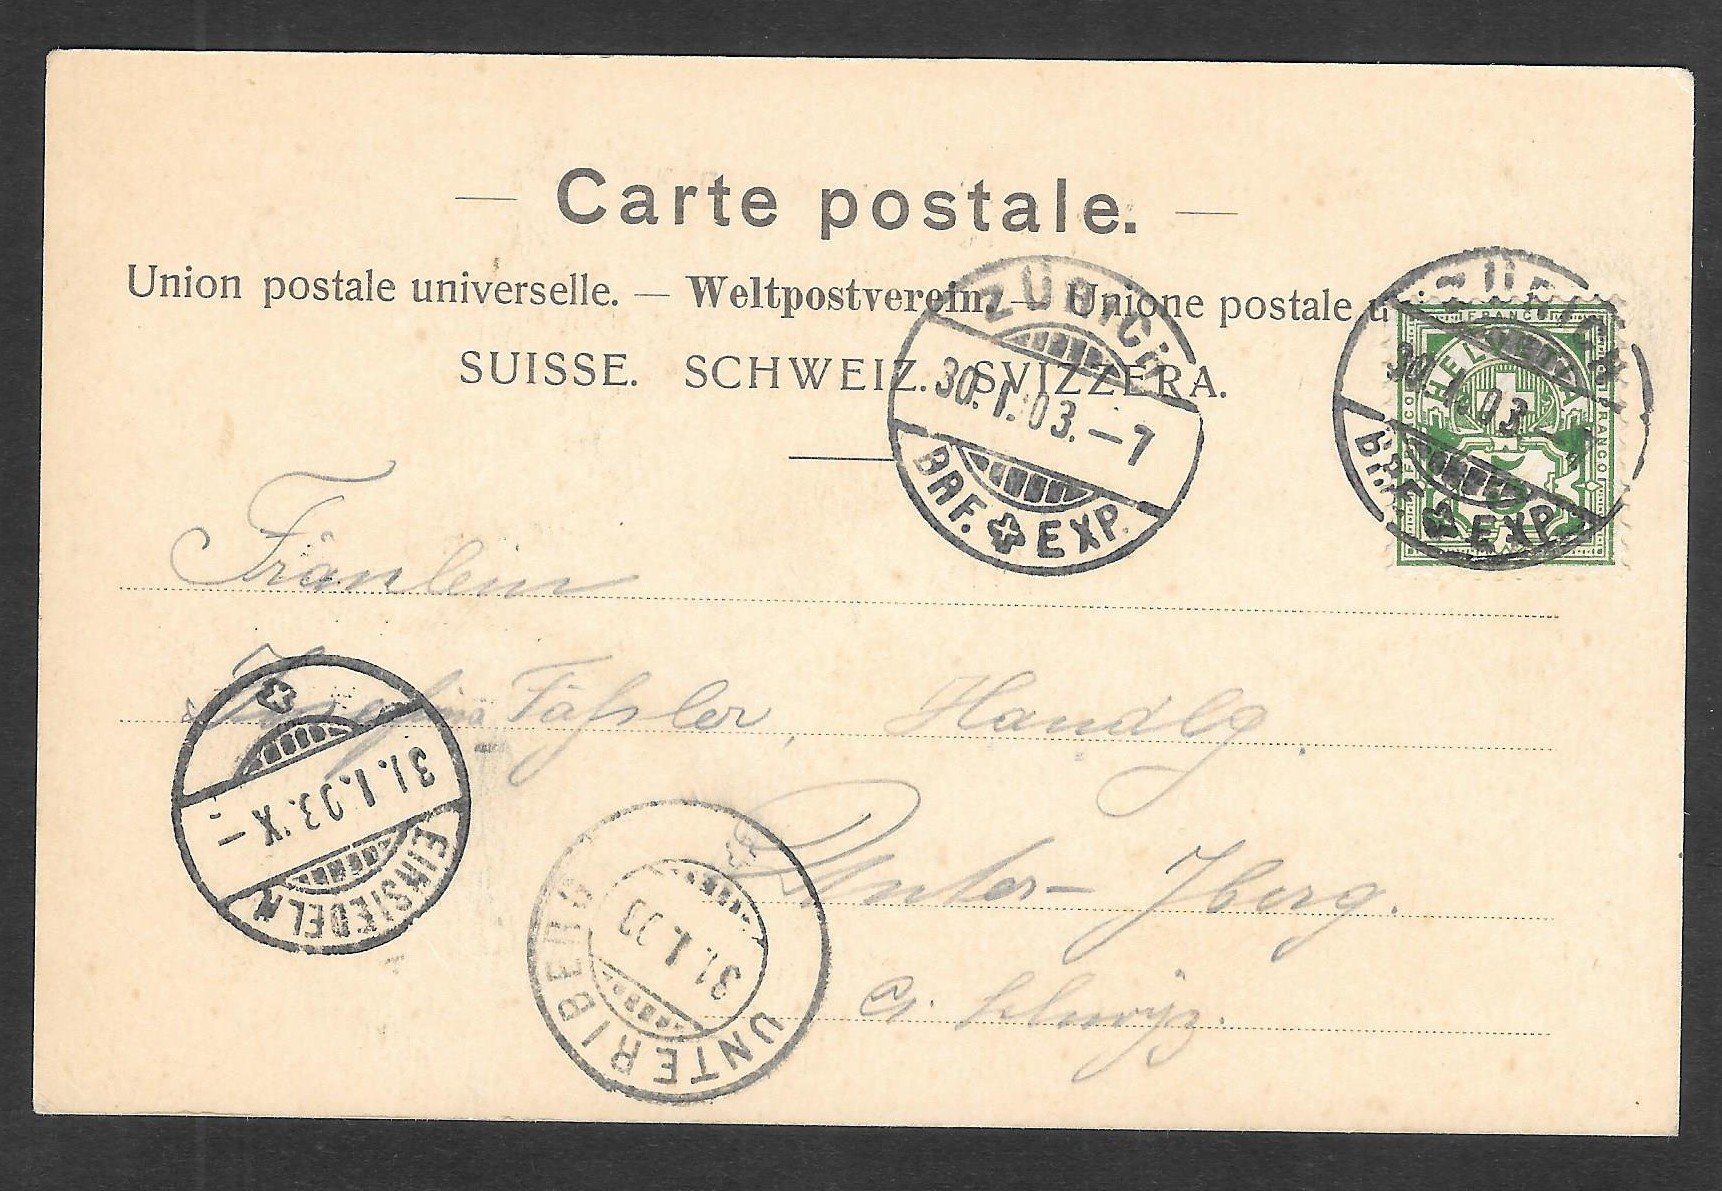 Carte postale.
Union postale universelle. — Weltpostverein. — Unione postale u
SUISSE. SCHWEIZ. SVIZZERA.
ZÜRICH
30.I.03.–7
BRF. EXP.
ZÜRICH
30.I.03.–7
BRF. EXP.
FRANCO
HELVETIA
FRANCO
FRANCO
5
Fräulein
Josefina Fäßler, Handlg.
Unter-Iberg.
Ct. Schwyz.
31.I.03.X–
EINSIEDELN
31.I.03
UNTERIBERG